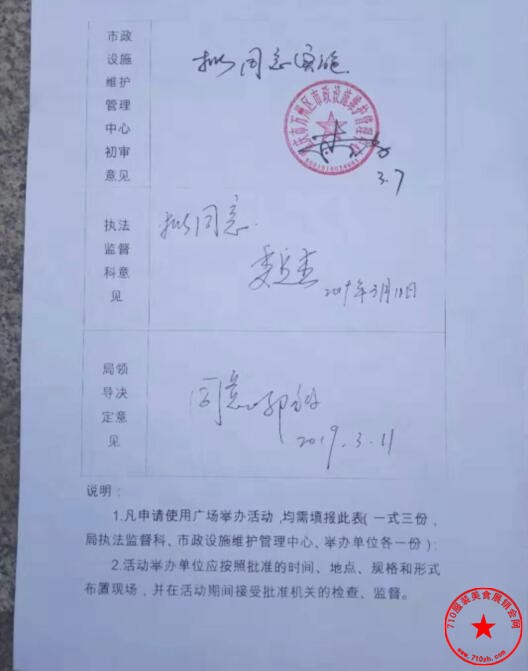 市政
设施
维护
管理
中心
初审
意见
拟同意实施
重庆市万州区市政设施维护管理
3.7
执法
监督
科意
见
拟同意.
2019年3月11日
局领
导决
定意
见
同意
2019.3.11
说明：
1.凡申请使用广场举办活动,均需填报此表(一式三份，
局执法监督科、市政设施维护管理中心、举办单位各一份)；
2.活动举办单位应按照批准的时间、地点、规格和形式
布置现场，并在活动期间接受批准机关的检查、监督。
710服装美食展销会网
www.710zh.com